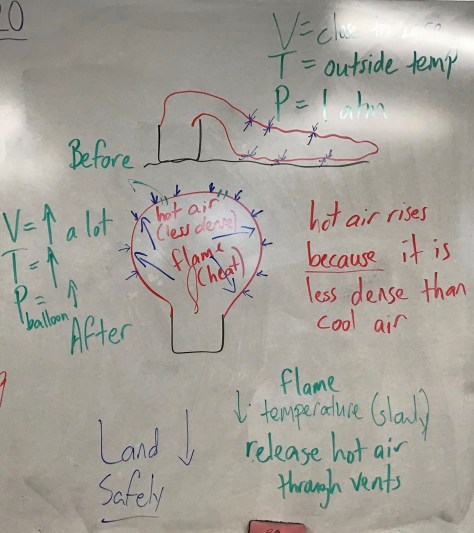 20
V = close to zero
T = outside temp
P = 1 atm
Before
V = ↑ a lot
T = ↑
P balloon = ↑
After
hot air
(less dense)
flame
(heat)
hot air rises
because it is
less dense than
cool air
Land ↓
Safely
flame
↓ temperature (slowly)
release hot air
through vents